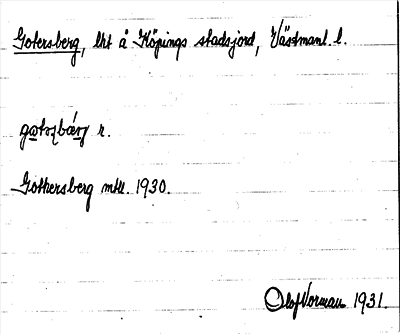 Gotersberg, lht å Köpings stadsjord, Västmanl. l.
r.
Gothersberg mtl. 1930.
Olof Vorman 1931.